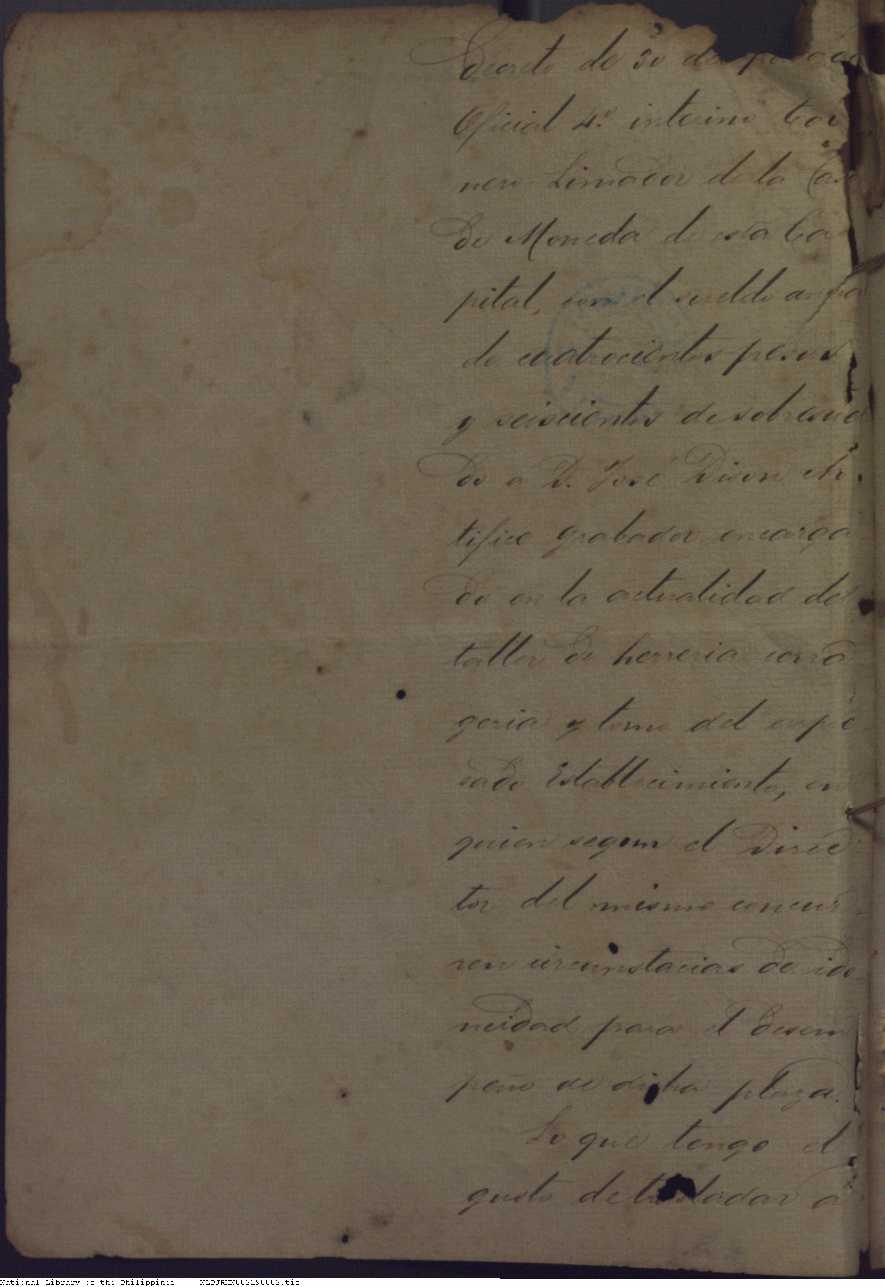 Decreto de 30 del
Oficial 4º interino Tor
nero Limador de la Ca
de Moneda de esta Ca
pital, con el sueldo anual
de cuatrocientos pesos
y seiscientos de sobresuel
do a D. José Dison Ar
tifice grabador encarga
do en la actualidad del
taller de herreria cerra
geria y torno del espre
sado Establecimiento, en
quien segun el Direc
tor del mismo concur
ren circunstacias de ido
neidad para el desem
peño de dicha plaza.
Lo que tengo el
gusto de trasladar a
National Library of the Philippines